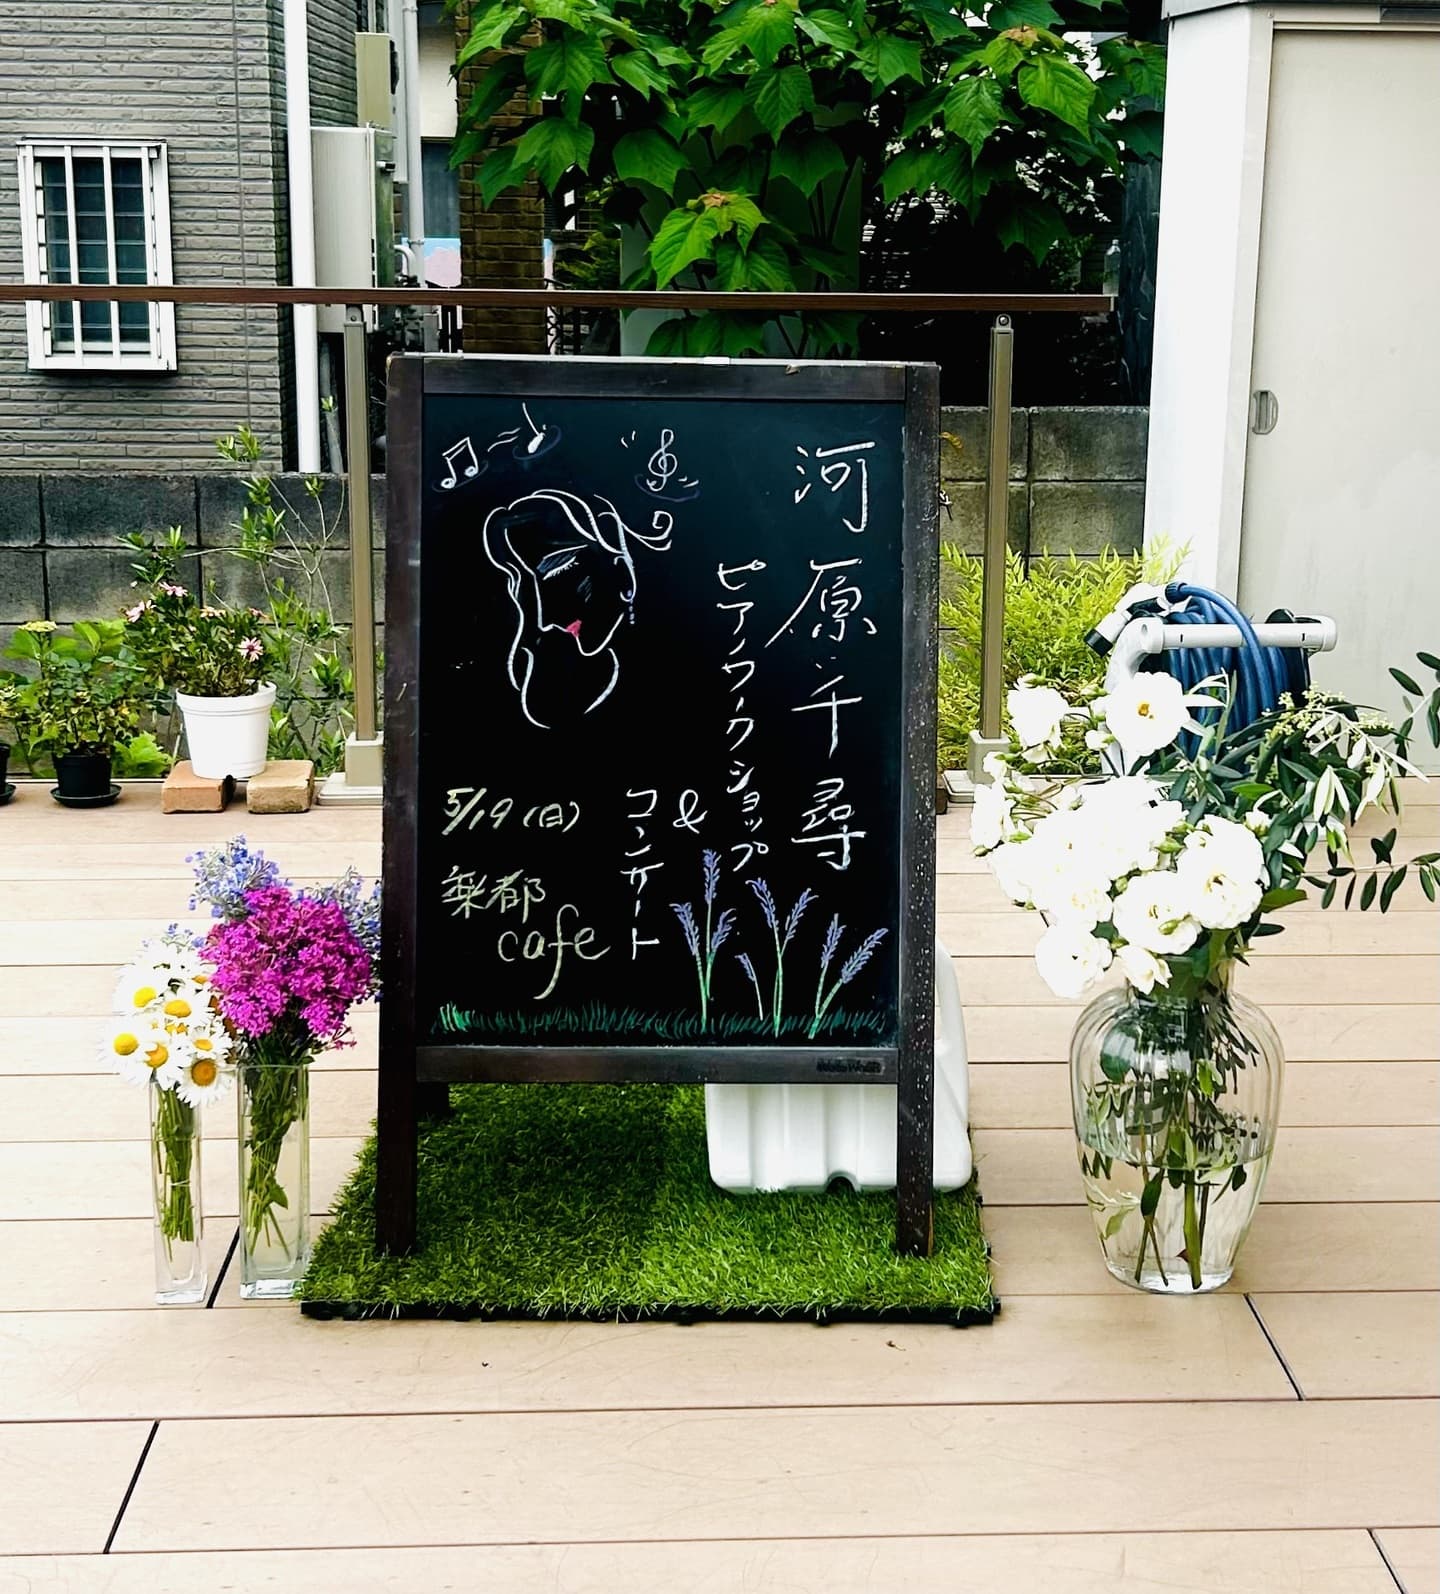 河原千尋
ピアノワークショップ
&
コンサート
5/19(日)
楽都
cafe